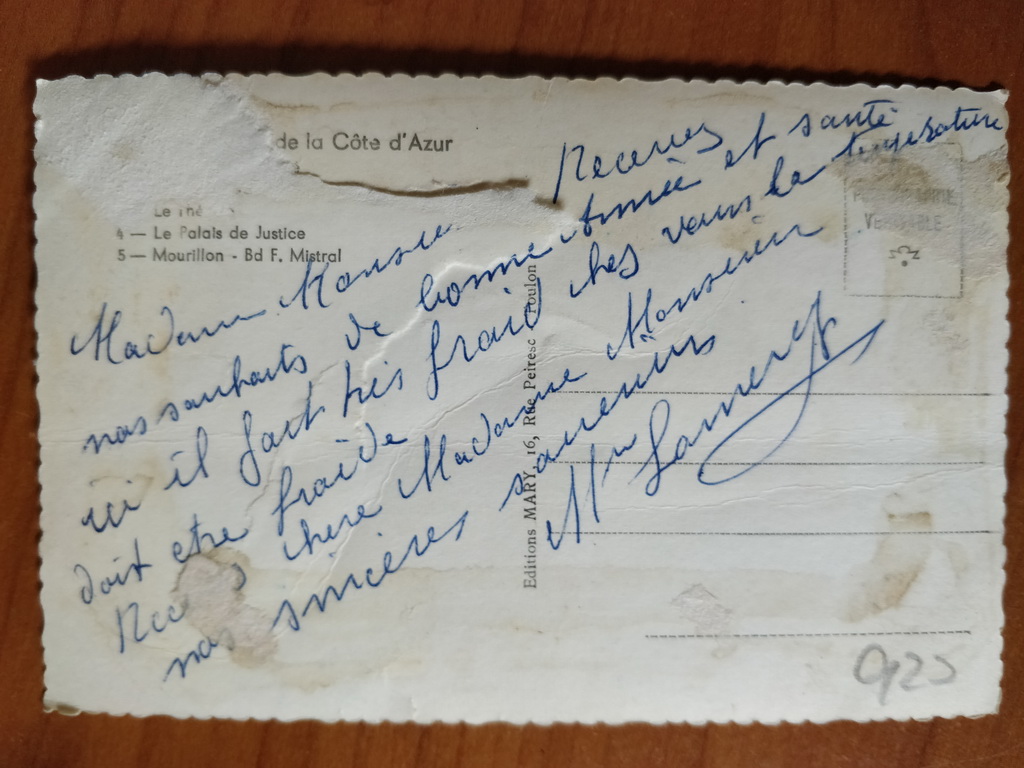 de la Côte d'Azur
Le Thé
4 — Le Palais de Justice
5 — Mourillon - Bd F. Mistral
Editions MARY, 16, Rue Peiresc Toulon
VERITABLE
Madame Monsieur Recevez
nos souhaits de bonne Année et santé
ici il fait très froid chez vous la température
doit etre froide
Recevez chere Madame Monsieur
nos sincères souvenirs
Mme
0,25